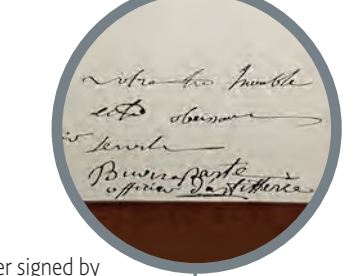 votre très humble
et très obeissant
serv
Buonaparte
officier d'artillerie
er signed by